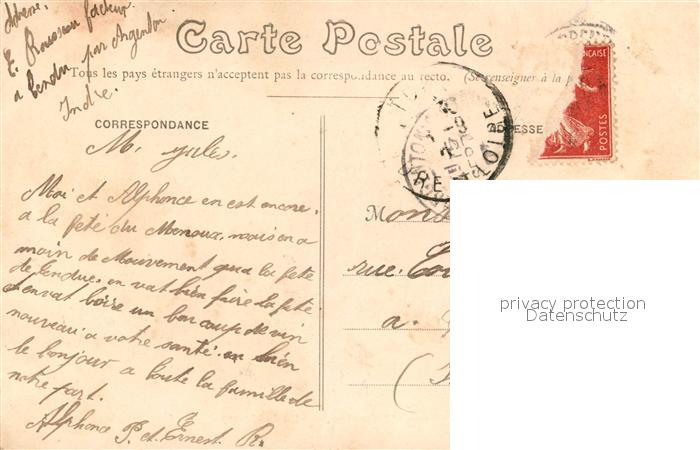 Adresse.
E. Rousseau facteur
a Cendre par Argenton
Indre.
Carte Postale
Tous les pays étrangers n'acceptent pas la correspondance au recto. (Se renseigner à la
CORRESPONDANCE
ADRESSE
M. jules.
Moi et Alphonce en est encore.
a la fete du Menoux, mais en a
moin de Mouvement qua la fete
de Cendre. en vat bien faire la fete
en vat boire un bon coup de vin
nouveau a votre santé. en bien
le bonjour a toute la famille de
notre part.
Alphonce P. et. Ernest R.
POSTES
rue.
a.
privacy protection
Datenschutz